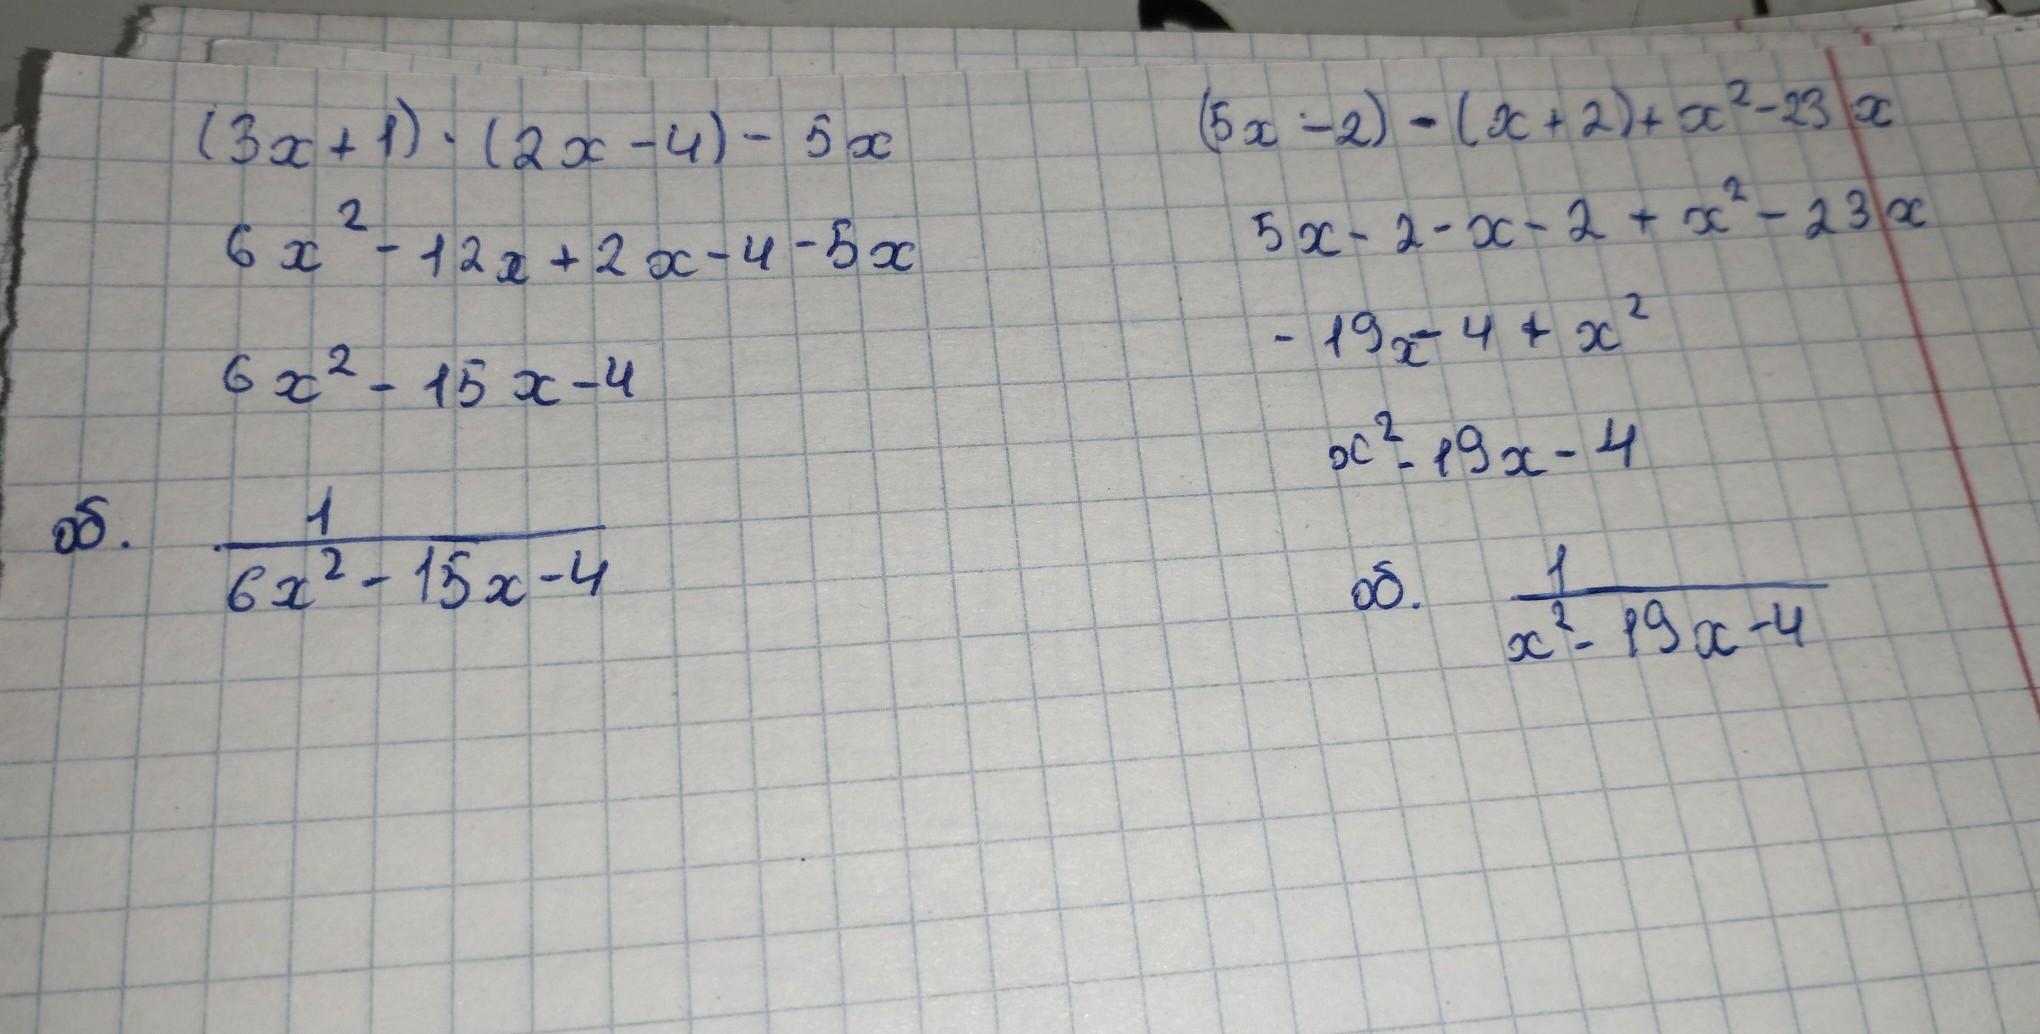 (3x+1)·(2x-4)-5x
6x²-12x+2x-4-5x
6x²-15x-4
об. 1/(6x²-15x-4)
(5x-2)-(x+2)+x²-23x
5x-2-x-2+x²-23x
-19x-4+x²
x²-19x-4
об. 1/(x²-19x-4)